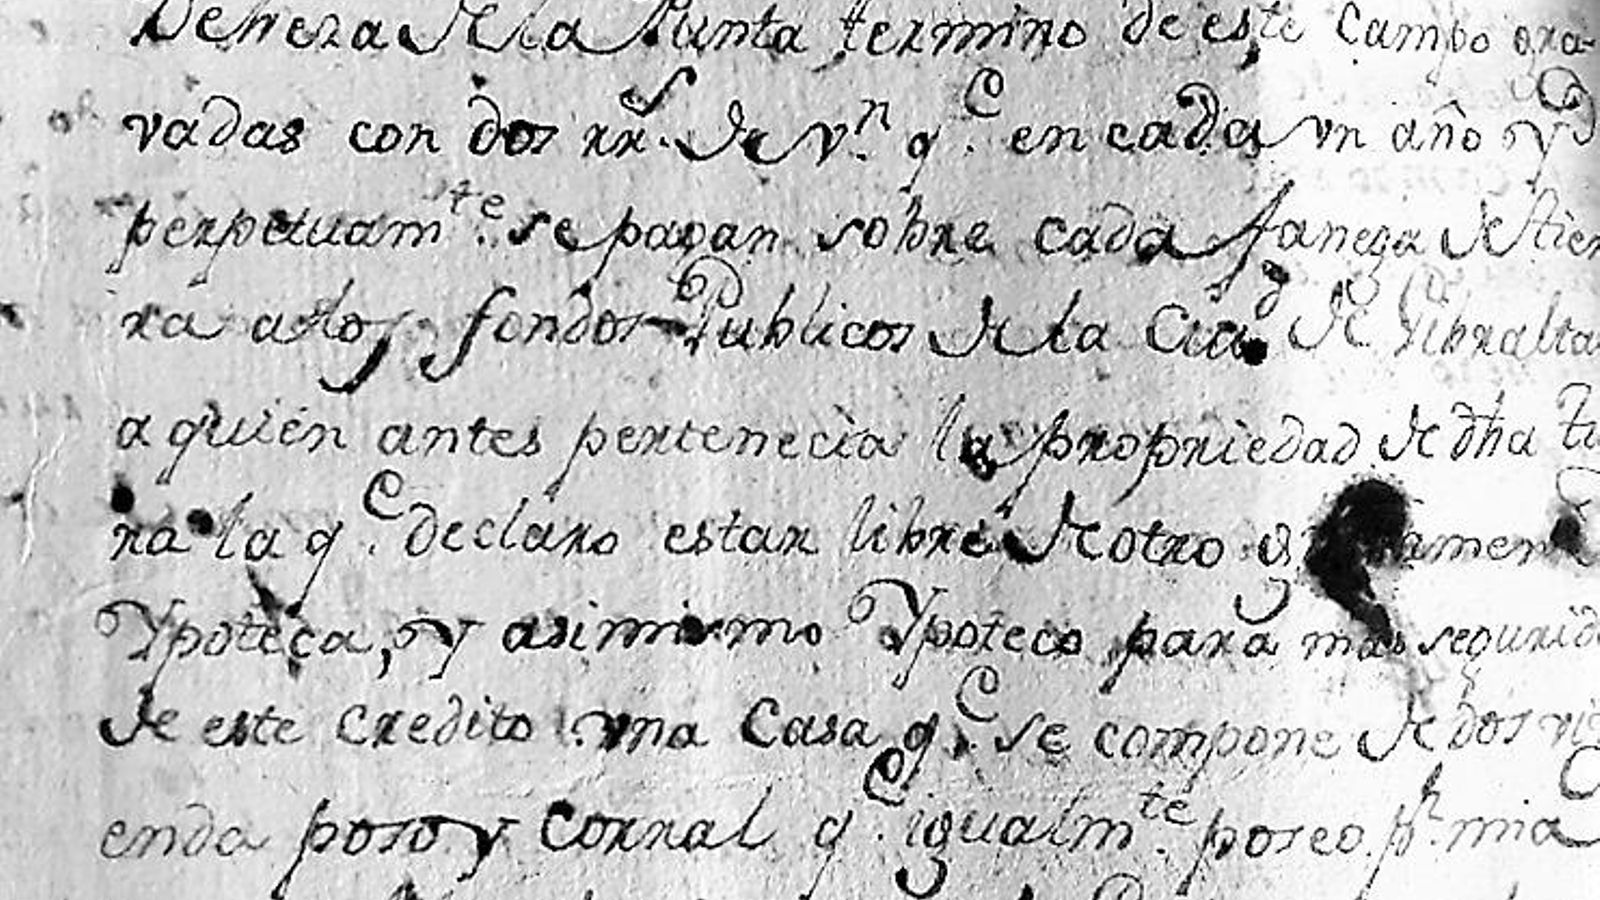 Deheza de la Punta termino de este Campo gra-
vadas con dos rr.s de v.n q.e en cada un año y
perpetuam.te se pagan sobre cada fanega de tier
ra a los fondos Publicos de la Ciu.d de Gibralta
a quien antes pertenecia la propriedad de dha
ra la q.e declaro estar libre de otro
Ypoteca, y asimismo Ypoteco para mas segurid
de este credito una Casa q.e se compone de dos vi
enda poso y Corral q.e igualm.te poseo p.r mia